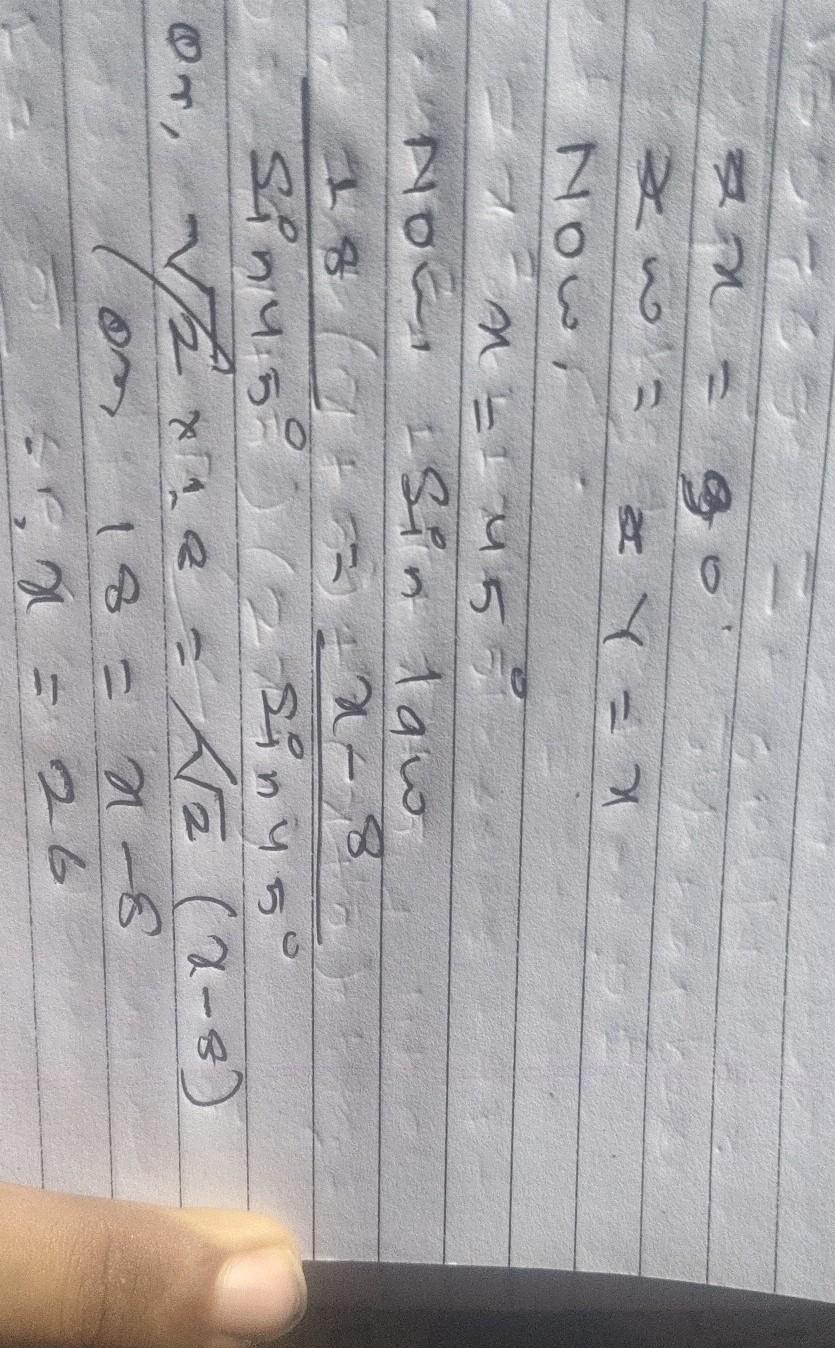 ∠x = 90°
∠w = ∠Y = x
Now,
x = 45°
Now, Sin law
18 / Sin45° = x-8 / Sin45°
or, √2 × 18 = √2 (x-8)
or, 18 = x-8
∴, x = 26